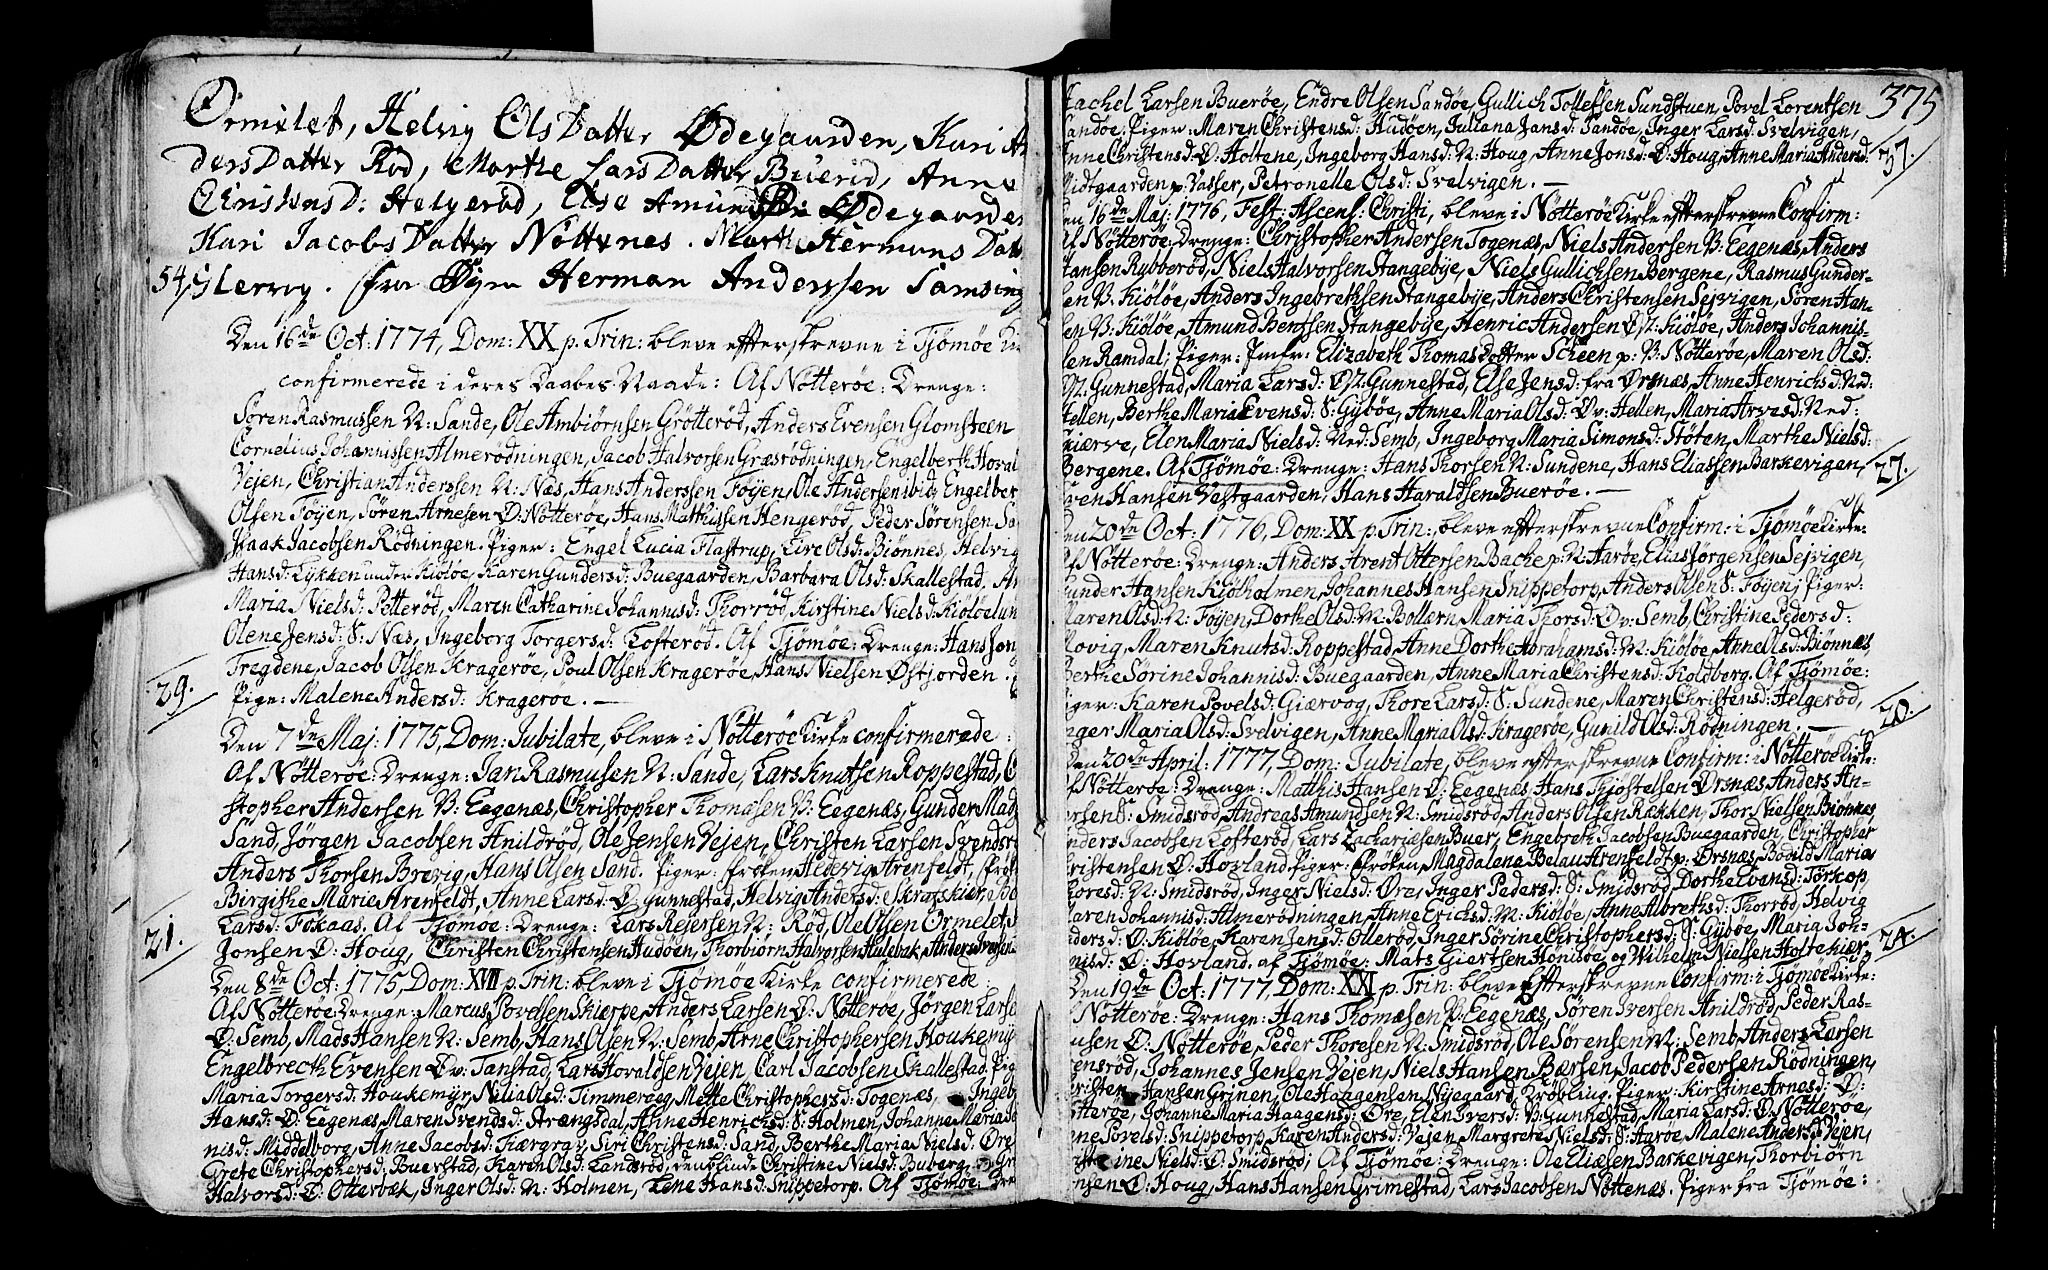 Ørmelet, Helvig OlsDatter Ødegaarden, Kari An
dersDatter Rød, Marthe LarsDatter Buerød, Anne
Christensd: Helgerød, Else Amunds Ødegaarde
Kari JacobsDatter Nøttenes. Marthe Hermans Datt
54, Glervig. fra Øyn Herman Anderssen Samsing
Den 16de Oct: 1774, Dom: XX p. Trin: bleve efterskrevne i Tjömöe Kir
confirmerede i deres Daabes Naade: Af Nötteröe: Drenge:
Sören Rasmussen N: Sande, Ole Ambiörnsen Grötteröd, Anders Evensen Glomsteen
Cornelius Johannissen Almerödningen, Jacob Halvorsen Græsrödningen, Engelberth Hoval
Vejen, Christian Anderssen N: Næs, Hans Anderssen Föyen, Ole Andersen ibid, Engelber
Olsen Föyen, Sören Arnesen Ö: Nötteröe, Hans Matthissen Hengeröd, Peder Sörensen Sa
Isaak Jacobsen Rödningen. Piger: Engel Lucia Flastrup, Live Olsd: Biönnes, Helvig
Hansd: Lykken under Kiölöe, Karen Gundersd: Buegaarden, Barbara Olsd: Skallestad. An
Maria Nielsd: Petteröd, Maren Catharine Johannisd: Thorröd Kirstine Nielsd: Kiölöelun
Olene Jensd: S: Næs, Ingeborg Torgersd: Lofteröd. Af Tjömöe: Drenge: Hans Jon
Tregdene, Jacob Olsen Krageröe, Poul Olsen Krageröe, Hans Nielsen Østjorden.
29. Pige: Malene Andersd: Krageröe. —
Den 7de Maj: 1775, Dom: Jubilate, bleve i Nötteröe Kirke confirmerede:
Af Nötteröe: Drenge: Jan Rasmusen N: Sande, Lars Knutsen Roppestad, C
stopher Andersen V: Eegenæs, Christopher Thomasen V: Eegenæs, Gunder Mad
Sand, Jörgen Jacobsen Anildröd, Ole Jensen Vejen, Christen Larsen Svendsr
Anders Thorsen Brevig, Hans Olsen Sand. Piger: Fröken Hedevig Arenfeldt, Frök
Birgithe Marie Arenfeldt, Anne Larsd: Ö: Gunnestad, Helvig Andersd: Skragskier, Bo
Larsd: Fokaas. Af Tjömöe: Drenge: Lars Rejersen N: Röd, Ole Olsen Ormelet,
21. Jonsen Ö: Houg, Christen Christensen Hudöen, Thorbiörn Halvorsen Hulebak, Anders Iversen
Den 8de Oct: 1775, Dom: XVII p. Trin: bleve i Tjömöe Kirke confirmerede:
Af Nötteröe Drenge: Marcus Povelsen Skierpe, Anders Larsen Ö: Nötteröe, Jörgen Larse
Ö: Semb, Mads Hansen N: Semb, Hans Olsen N: Semb, Arne Christophersen Houkemyr
Engelbrecth Evensen Öv: Tanstad, Lars Hovaldsen Vejen, Carl Jacobsen Skallestad. Pig
Maria Torgersd: Houkemyr, Nilia Olsd: Timmeröeg, Mette Christophersd: Togenæs, Ingeb
Hansd: Ö: Eegenæs, Maren Svendsd: Strængsdal, Anne Henrichsd: S: Holmen, Johanne Maria
nisd: Middelborg, Anne Jacobsd: Kiærgrav, Siri Christensd: Sand, Berthe Maria Nielsd: Øre
Grete Christophersd: Buerstad, Karen Olsd: Landsröd, den blinde Christine Nielsd: Buberg
Halvorsd: Ö: Otterbæk, Inger Olsd: N: Holmen, Lene Hansd: Snippetorp. Af Tjömöe: Dre
375
Rachel Larsen Bueröe, Endre Olsen Sandöe, Gullich Tollefsen Sundstuen, Povel Lorentsen
Sandöe: Piger: Maren Christensd: Hudöen, Juliana Jansd: Sandöe, Inger Larsd: Svelvigen,
Anne Christensd: Ö: Holtene, Ingeborg Hansd: N: Houg, Anne Jonsd: Ö: Houg, Anne Maria Andersd: 37.
Midtgaarden p: Vasser, Petronelle Olsd: Svelvigen. —
Den 16de Maj: 1776, Fest: Ascens: Christi, bleve i Nötteröe Kirke efterskrevne Confirm:
Af Nötteröe: Drenge: Christopher Andersen Togenæs, Niels Andersen V: Eegenæs, Anders
Hansen Rybberöd, Niels Halvorsen Stangebye, Niels Gullichsen Bergene, Rasmus Gunder-
sen V: Kiölöe, Anders Ingebrethsen Stangebye, Anders Christensen Sejvigen, Sören Han-
sen V: Kiölöe, Amund Bentsen Stangebye, Henric Andersen Ö: Kiölöe, Anders Johannis-
sen Ramdal; Piger: Jmfr: Elizabeth Thomasdotter Scheen p: V: Nötteröe, Maren Olsd:
Gunnestad, Maria Larsd: Ö: Gunnestad, Else Jensd: fra Örsnæs, Anne Henrichsd: Ned:
Hellen, Berthe Maria Evensd: S: Gyböe, Anne Maria Olsd: Öv: Hellen, Maria Arvesd: Ned:
Skiærve, Elen Maria Nielsd: Ned: Semb, Ingeborg Maria Simonsd: Stöten, Marthe Nielsd:
Bergene. Af Tjömöe: Drenge: Hans Thorsen N: Sundene, Hans Eliassen Barkevigen, 27.
Even Hansen Vestgaarden, Hans Haraldsen Bueröe. —
Den 20de Oct: 1776, Dom: XX p. Trin: bleve efterskrevne Confirm: i Tjömöe Kirke:
Af Nötteröe: Drenge: Anders Arent Ottersen Bache p: N: Aaröe, Elias Jörgensen Sejvigen,
Gunder Hansen Kiölholmen, Johannes Hansen Snippetorp, Anders Olsen S: Föyen; Piger:
Maren Olsd: N: Föyen, Dorthe Olsd: N: Bollærn, Maria Thorsd: Öv: Semb, Christine Pedersd:
Rovig, Maren Knutsd: Roppestad, Anne Dorthe Abrahamsd: N: Kiölöe, Anne Olsd: Biönnæs,
Berthe Sörine Johannisd: Buegaarden, Anne Maria Christensd: Koldborg. Af Tjömöe:
Piger: Karen Povelsd: Giærvog, Thore Larsd: S: Sundene, Maren Christensd: Helgeröd, 20.
Inger Maria Olsd: Svelvigen, Anne Maria Olsd: Krageröe, Gunild Olsd: Rödningen. —
Den 20de April: 1777, Dom: Jubilate, bleve efterskrevne Confirm: i Nötteröe Kirke:
Af Nötteröe: Drenge: Matthis Hansen Ö: Eegenæs, Hans Thjöstelsen Örsnæs, Anders An-
dersen S: Smidsröd, Andreas Amundsen N: Smidsröd, Anders Olsen Rækken, Thor Nielsen Biönnæs,
Anders Jacobsen Lofteröd, Lars Zachariasen Buer, Engebreth Jacobsen Buegaarden, Christopher
Christensen Ö: Hovland. Piger: Fröken Magdalene Belau Arenfeldt p: Örsnæs, Bodild Maria
Thoresd: N: Smidsröd, Inger Nielsd: Øre, Inger Pedersd: S: Smidsröd, Dorthe Evensd: Torkop,
Karen Johannisd: Almerödningen, Anne Erichsd: N: Kiölöe, Anne Albrethsd: Thorröd, Helvig
Andersd: Ö: Kiölöe, Karen Jensd: Olleröd, Inger Sörine Christophersd: S: Gyböe, Maria Joh-
annisd: Ö: Hovland. af Tjömöe: Mats Giertsen Hönisöe, og Wilhelm Nielsen Holtekiær. 24.
Den 19de Oct: 1777, Dom: XXI p. Trin: bleve Efterskrevne Confirm: i Tjömöe Kirke:
Nötteröe: Drenge: Hans Thomæsen V: Eegenæs, Sören Iversen Anildröd, Peder Ras-
musen Ö: Nötteröe, Peder Thoresen N: Smidsröd, Ole Sörensen N: Semb, Anders Larsen
ensröd, Johannes Jensen Vejen, Niels Hansen Bærsen, Jacob Pedersen Rödningen,
Christen Hansen Grinen, Ole Haagensen Nyegaard, Kröbling. Piger: Kirstine Arnesd: Ö:
Nötteröe, Johanne Maria Haagensd: Øre, Elen Iversd: V: Gunnestad, Maria Larsd: Ö: Nötteröe,
ene Povelsd: Snippetorp, Karen Andersd: Vejen, Margrete Nielsd: S: Aaröe, Malene Andersd: Vejen,
ine Nielsd: Ö: Smidsröd; Af Tjömöe: Drenge: Ole Eliæsen Barkevigen, Thorbiörn
nsen Ö: Houg, Hans Hansen Grimestad, Lars Jacobsen Nöttenæs. Piger fra Tjömöe: